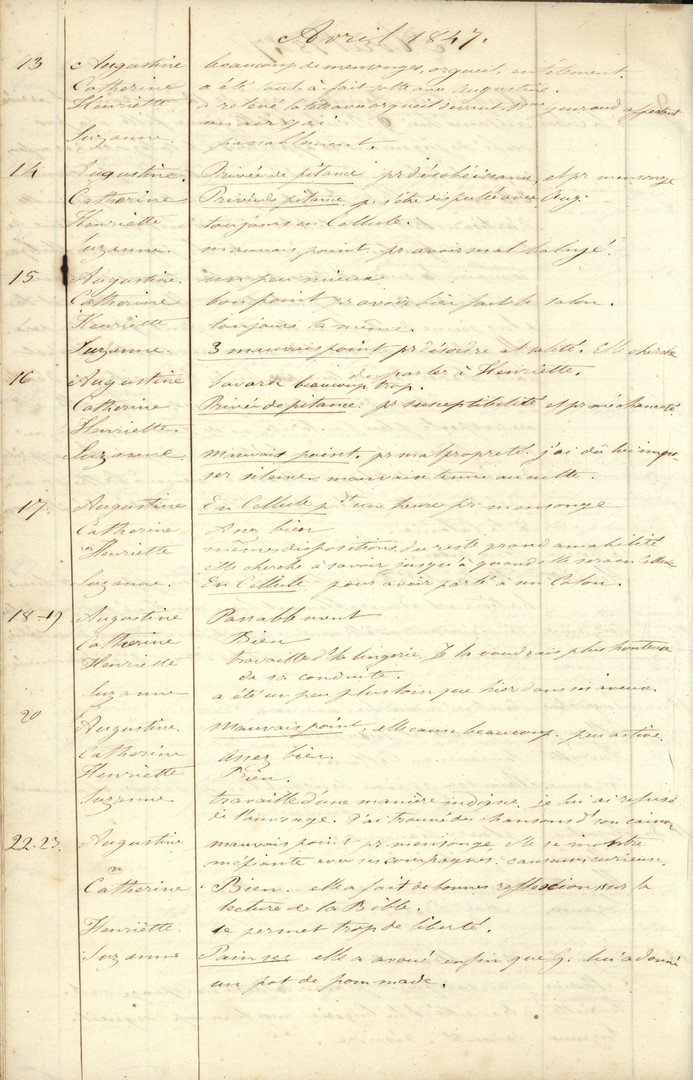 Avril 1847.
13 Augustine beaucoup de mensonges, orgueil, entêtement.
Catherine a été tout à fait sotte avec Augustine.
Henriette a relevé la tête avec orgueil devant Mme
un air gai
Suzanne. passablement.
14 Augustine. Privée de pitance pr désobéissance, et pr mensonge
Catherine Privée de pitance pr s'être disputée avec Aug:
Henriette toujours en Cellule.
Suzanne. mauvais point, pr avoir mal balayé.
15 Augustine. un peu mieux
Catherine bon point pr avoir bien fait le salon.
Henriette toujours la même.
Suzanne. 3 mauvais point pr désordre et saleté. Elle cherche
de parler à Henriette.
16 Augustine bavarde beaucoup trop.
Catherine Privée de pitance pr susceptibilité et pr méchanceté
Henriette.
Suzanne mauvais point. pr malpropreté. j'ai dû lui impo-
ser silence mauvaise tenue au culte.
17. Augustine En Cellule pdt une heure pr mensonge
Catherine Assez bien
Henriette mêmes dispositions, du reste grande amabilité
elle cherche à savoir jusqu'à quand elle sera en Cellule
Suzanne. En Cellule pour avoir parlé à un Colon.
18-19 Augustine Passablement
Catherine Bien
Henriette travaille ds la lingerie. Je la voudrais plus honteuse
de sa conduite.
Suzanne a été un peu plus loin que hier dans ses aveux.
20 Augustine. Mauvais point, elle cause beaucoup. peu active.
Catherine assez bien.
Henriette Bien.
Suzanne travaille d'une manière indigne. je lui ai refusé
de l'ouvrage. J'ai trouvé des chansons ds son
22-23. Augustine mauvais point pr mensonge, elle se montre
méfiante avec ses compagnes. causeuse curieuse.
Catherine Bien. elle a fait de bonnes reflexion sur la
lecture de la Bible.
Henriette. se permet trop de liberté.
Suzanne Pain sec elle a avoué enfin que G. lui a donné
un pot de pommade.